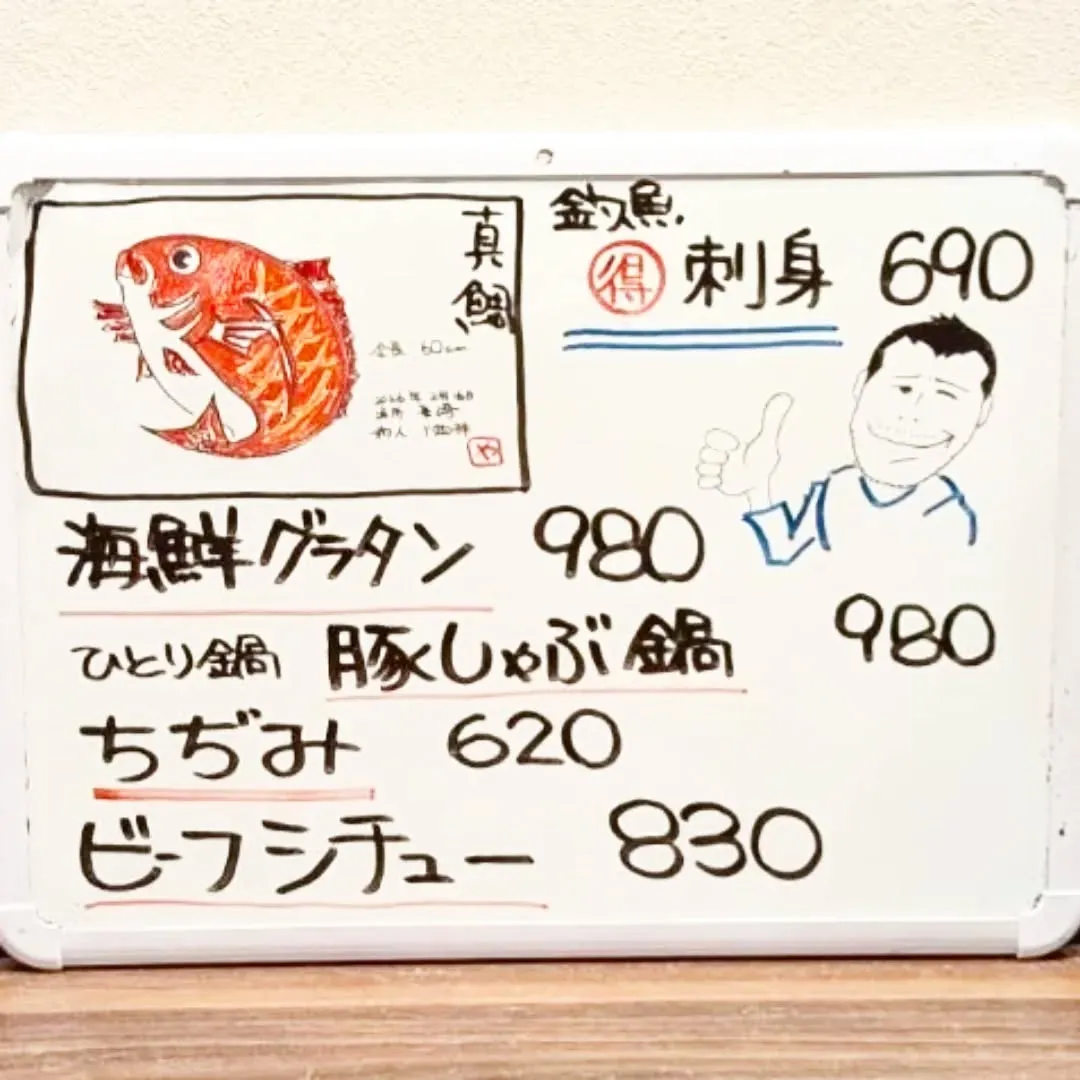 真鯛
全長 60cm
釣人
や
釣魚.
得 刺身 690
海鮮グラタン 980
ひとり鍋 豚しゃぶ鍋 980
ちぢみ 620
ビーフシチュー 830